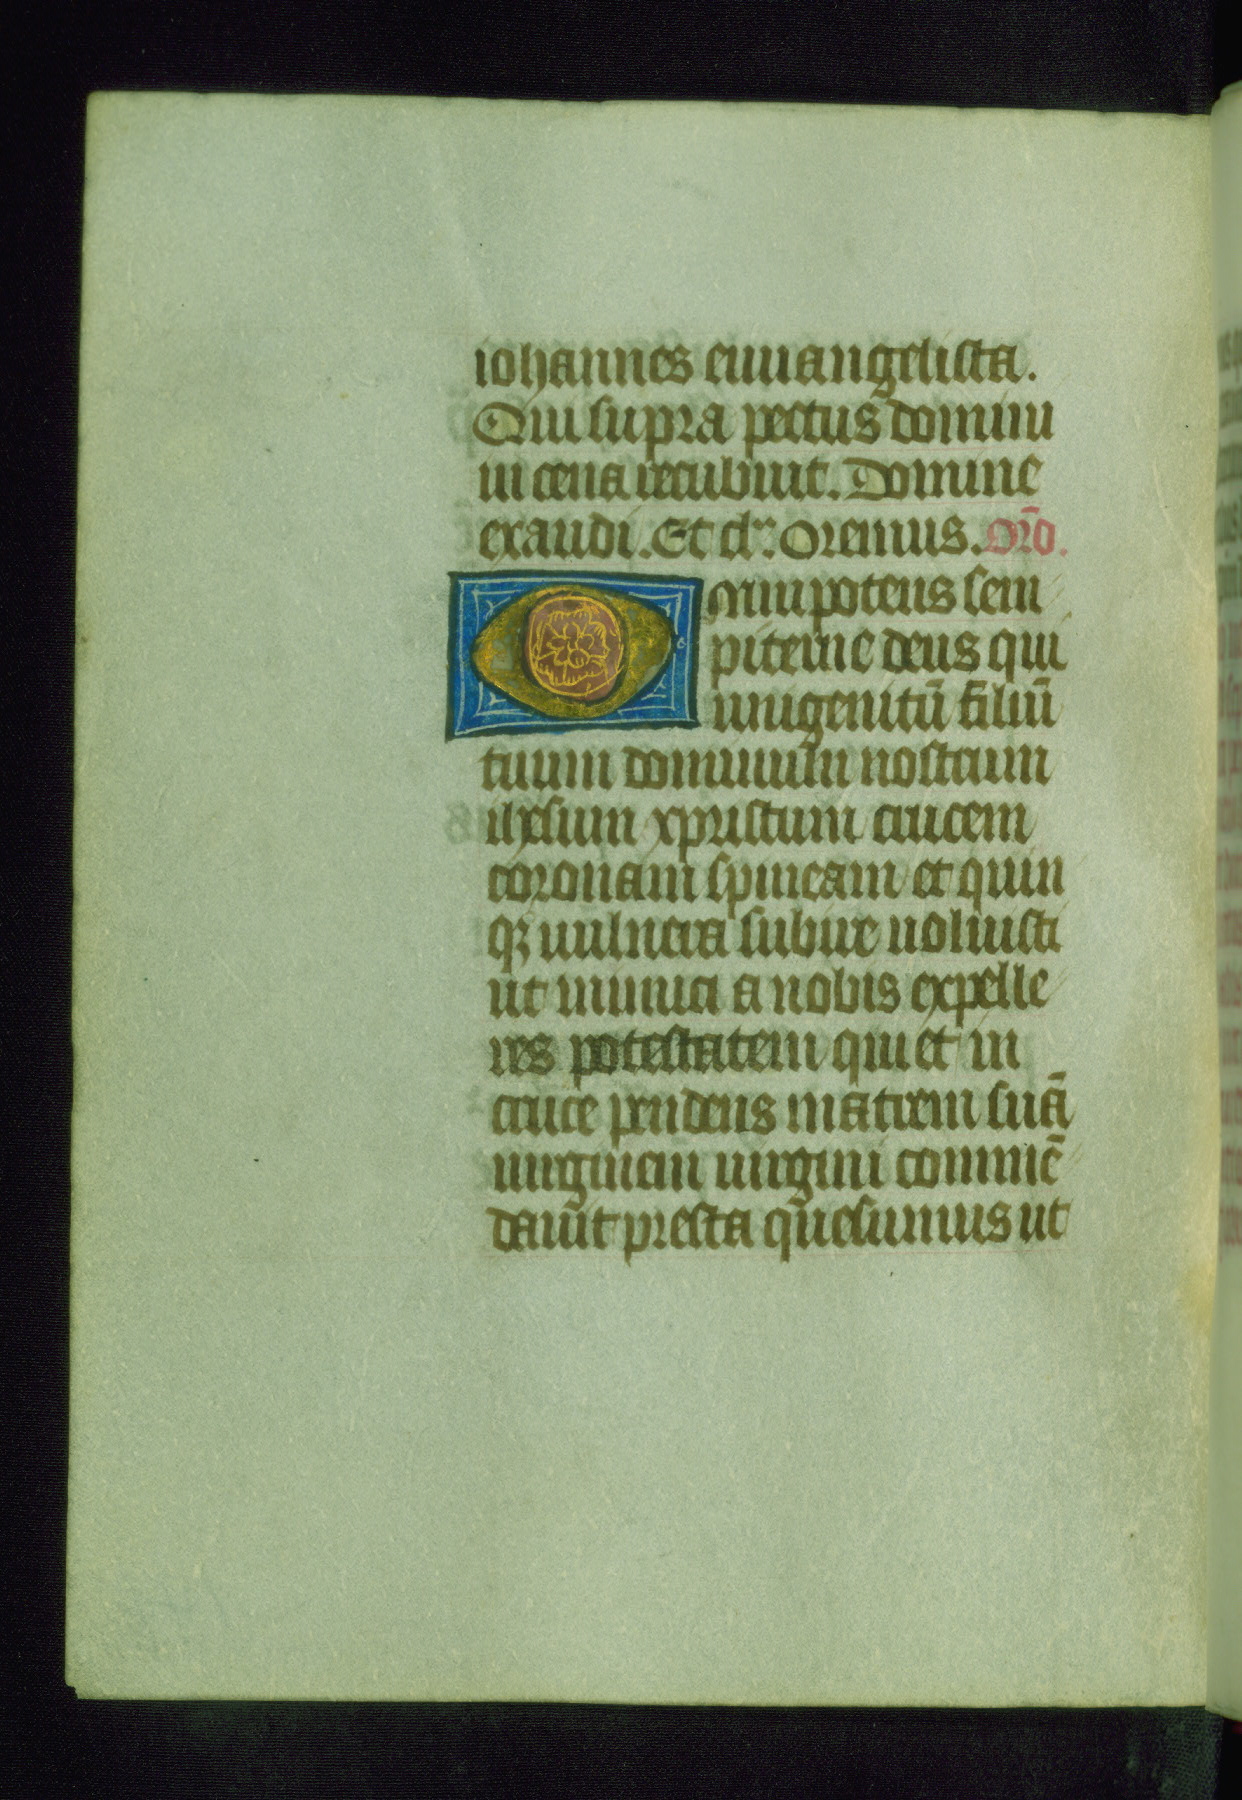 iohannes euuangelista.
Qui supra pectus domini
in cena recubuit. Domine
exaudi. Et cl'. Oremus. Orō.
Omnipotens sem
piterne deus qui
unigenitū filiū
tuum dominum nostrum
ihesum xpristum crucem
coronam spineam et quin
qꝫ uulnera subire uoluisti
ut inimici a nobis expelle
res potestatem qui et in
cruce pendens matrem suā
uirginem uirgini commē
dauit presta quesumus ut